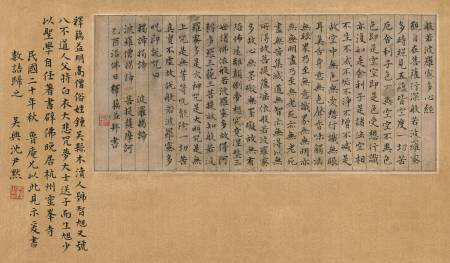 般若波羅蜜多心經
觀自在菩薩行深般若波羅蜜
多時照見五蘊皆空度一切苦
厄舍利子色不異空空不異色
色即是空空即是色受想行識
亦復如是舍利子是諸法空相
不生不滅不垢不淨不增不減是
故空中無色無受想行識無眼
耳鼻舌身意無色聲香味觸法
無眼界乃至無意識界無無明亦
無無明盡乃至無老死亦無老死
盡無苦集滅道無智亦無得以無
所得故菩提薩埵依般若波羅蜜
多故心無罣礙無罣礙故無有
恐怖遠離顛倒夢想究竟涅槃三
世諸佛依般若波羅蜜多故得阿
耨多羅三藐三菩提故知般若波
羅蜜多是大神咒是大明咒是無
上咒是無等等咒能除一切苦
真實不虛故說般若波羅蜜多
咒即說咒曰
揭諦揭諦 波羅揭諦
波羅僧揭諦 菩提薩摩訶
乙酉浴佛日釋蕅益拜書
釋蕅益明高僧俗姓鍾吳縣木瀆人號智旭又號
八不道人父持白衣大悲咒夢大士送子而生旭少
以聖學自任著書闢佛晚居杭州靈峯寺
民國二十年秋 魯庵兄以此見示爰書
數語歸之 吳興沈尹默